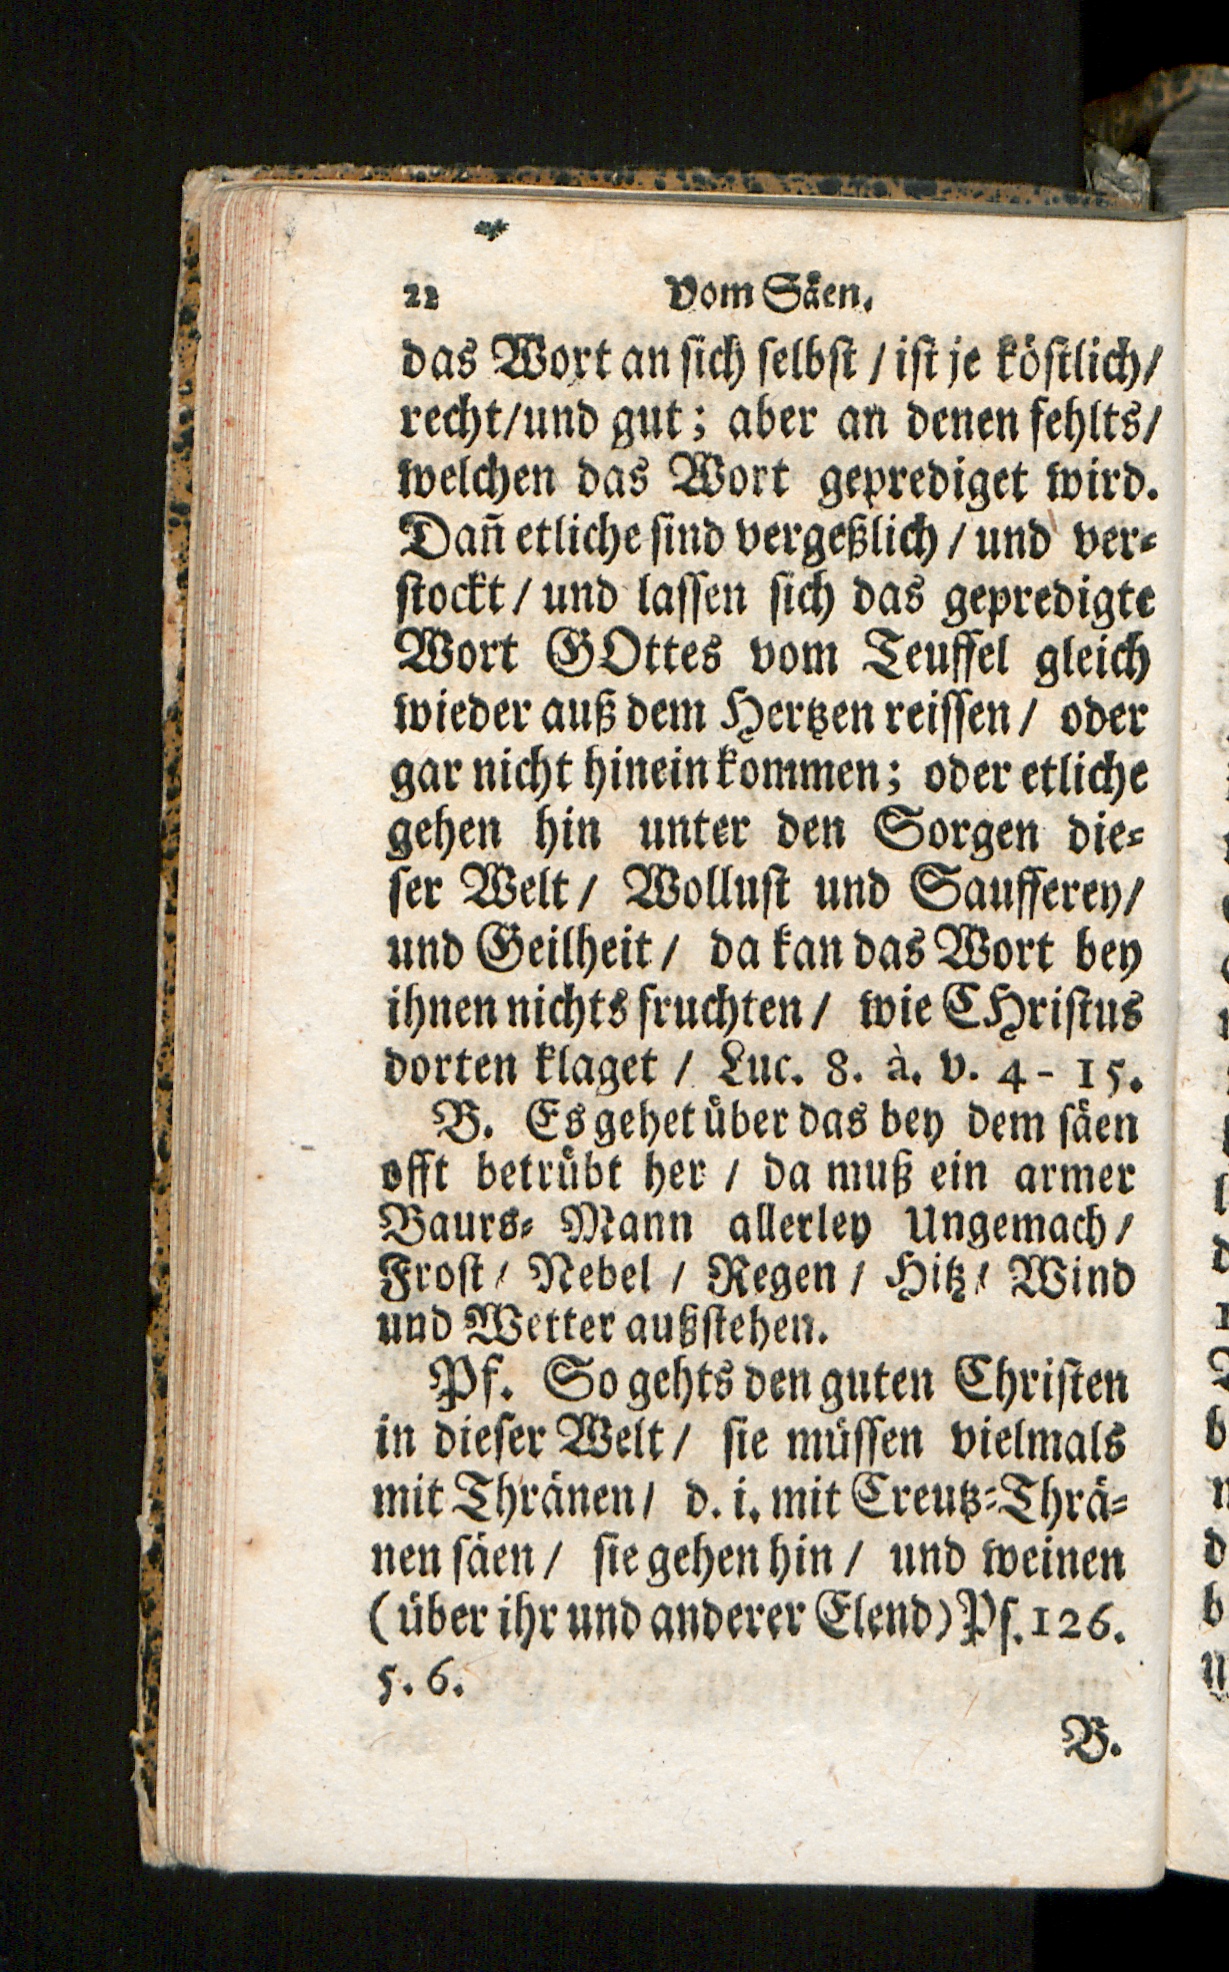 22 Vom Säen.
das Wort an sich selbst / ist je köstlich/
recht/und gut; aber an denen fehlts/
welchen das Wort geprediget wird.
Dañ etliche sind vergeßlich / und ver-
stockt / und lassen sich das gepredigte
Wort GOttes vom Teuffel gleich
wieder auß dem Hertzen reissen / oder
gar nicht hinein kommen; oder etliche
gehen hin unter den Sorgen die-
ser Welt / Wollust und Saufferey/
und Geilheit / da kan das Wort bey
ihnen nichts fruchten / wie CHristus
dorten klaget / Luc. 8. à. v. 4 - 15.
B. Es gehet über das bey dem säen
offt betrübt her / da muß ein armer
Baurs- Mann allerley Ungemach /
Frost / Nebel / Regen / Hitz / Wind
und Wetter außstehen.
Pf. So gehts den guten Christen
in dieser Welt / sie müssen vielmals
mit Thränen / d. i. mit Creutz-Thrä-
nen säen / sie gehen hin / und weinen
(über ihr und anderer Elend) Ps. 126.
5. 6.
B.